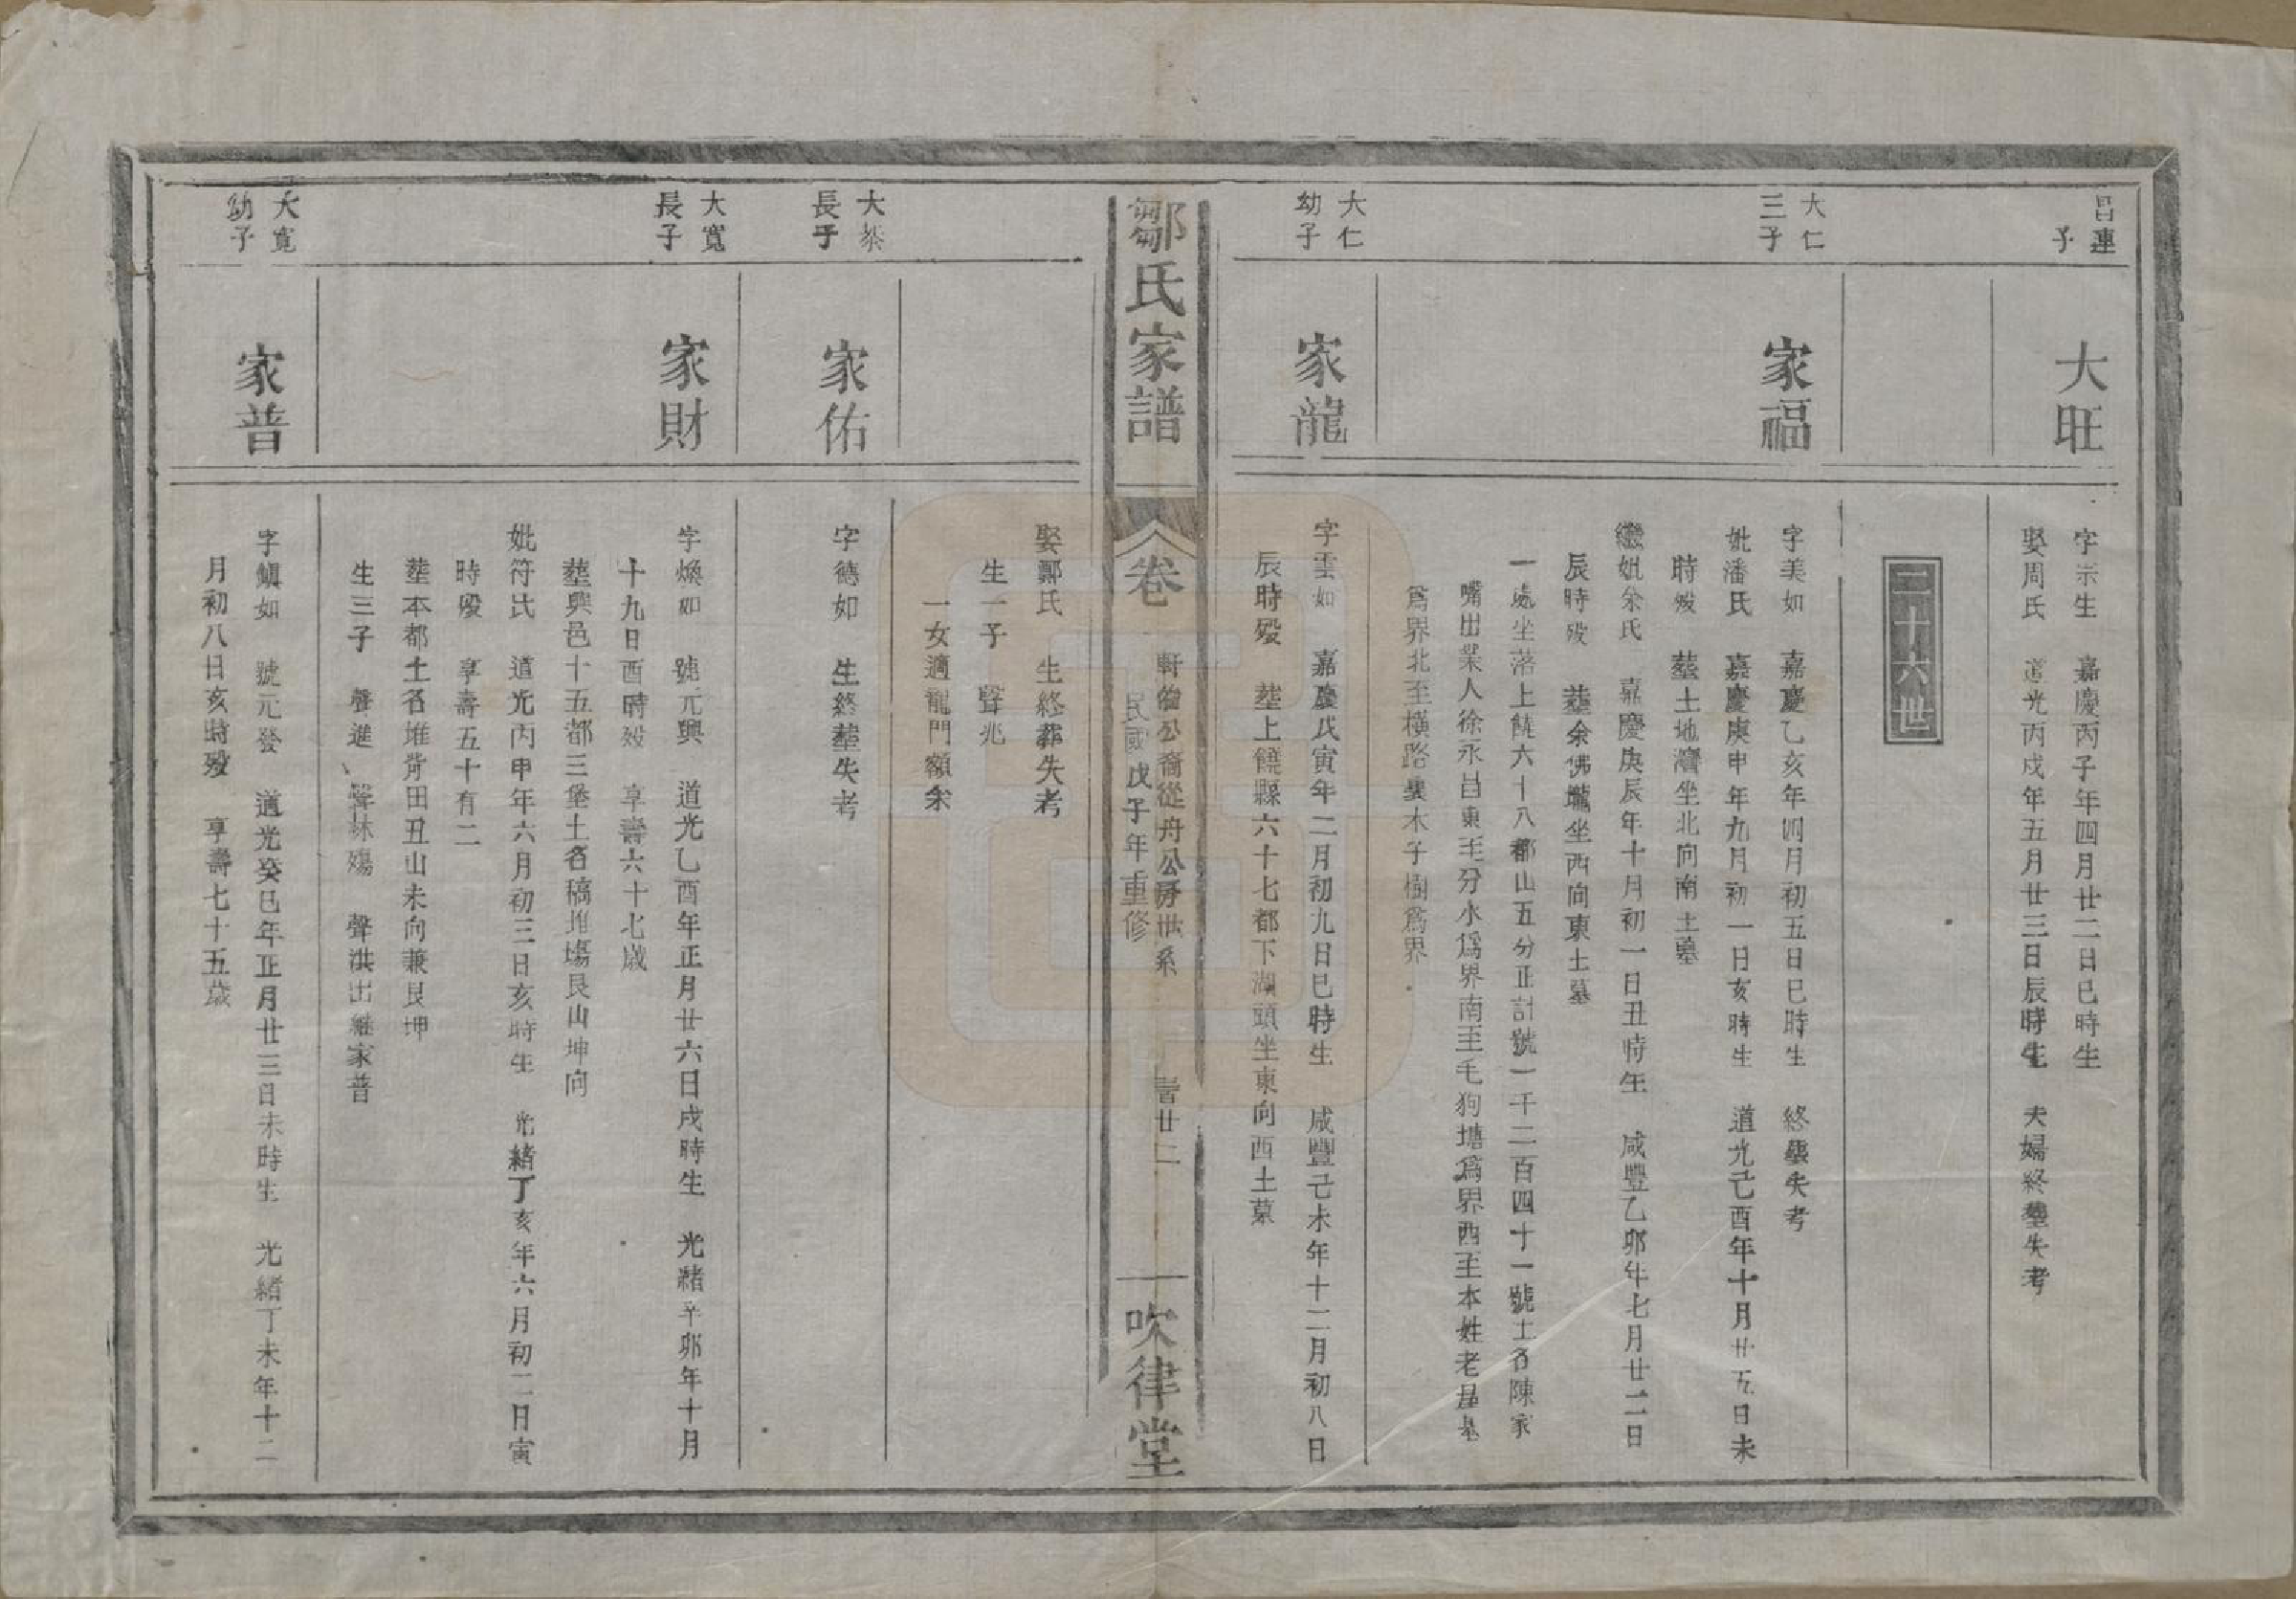 昌連
子
大旺
字宗生　嘉慶丙子年四月廿二日巳時生
娶周氏　道光丙戌年五月廿三日辰時生　夫婦終塟失考
二十六世
大仁
三子
家福
字美如　嘉慶乙亥年四月初五日巳時生　終塟失考
妣潘氏　嘉慶庚申年九月初一日亥時生　道光己酉年十月廿五日未
時歿　塟土地灣坐北向南土墓
繼妣余氏　嘉慶庚辰年十月初一日丑時生　咸豐乙卯年七月廿二日
辰時歿　塟余佛壠坐西向東土墓
一處坐落上饒六十八都山五分正計號一千二百四十一號土名陳家
嘴出業人徐永昌東至分水爲界南至毛狗塘爲界西至本姓老昌墓
爲界北至橫路裏木子樹爲界
大仁
幼子
家龍
字雲如　嘉慶戊寅年二月初九日巳時生　咸豐己未年十二月初八日
辰時歿　塟上饒縣六十七都下湖頭坐東向西土墓
鄒氏家譜
卷
軒伯公裔從舟公房世系
民國戊子年重修
廿二
吹律堂
娶鄭氏　生終葬失考
生一子　聲兆
一女適龍門額余
大
長子
家佑
字德如　生終塟失考
大寬
長子
家財
字煥如　號元興　道光乙酉年正月廿六日戌時生　光緒辛卯年十月
十九日酉時歿　享壽六十七歲
塟興邑十五都三堡土名稿堆塲艮山坤向
妣符氏　道光丙申年六月初三日亥時生　光緒丁亥年六月初二日寅
時歿　享壽五十有二
塟本都土名堆背田丑山未向兼艮坤
生三子　聲進　聲林殤　聲洪出繼家普
大寬
幼子
家普
字鎭如　號元發　道光癸巳年正月廿三日未時生　光緒丁未年十二
月初八日亥時歿　享壽七十五歲